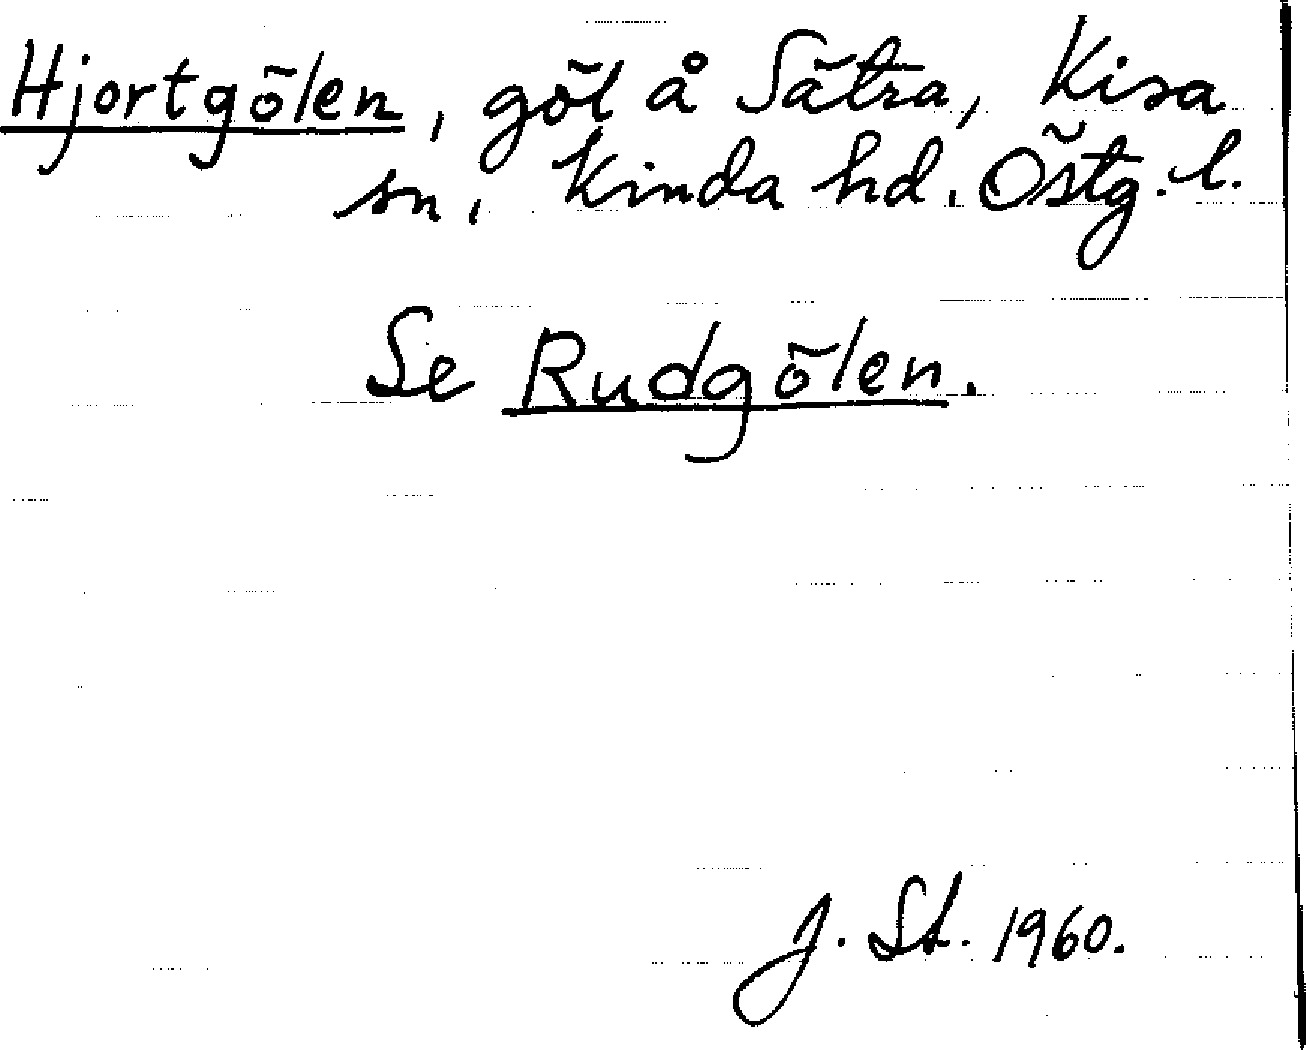 Hjortgölen, göl å Sätra, Kisa
sn, Kinda hd. Östg. l.
Se Rudgölen.
J. St. 1960.